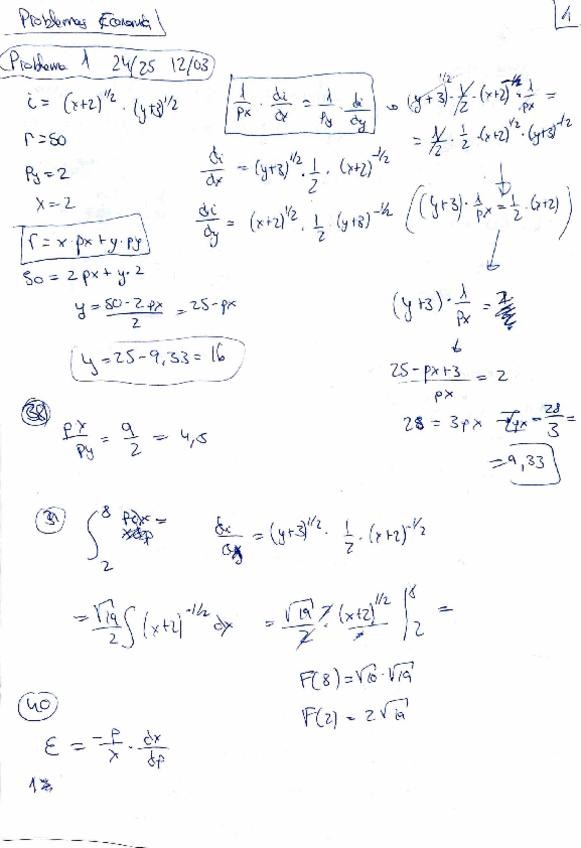 Problemas Economía
1
Problema 1 24/25 12/03
i = (x+2)^1/2 · (y+3)^1/2
r=50
Py=2
x=2
r = x·px + y·py
50 = 2px + y·2
y = 50-2px / 2 = 25-px
y = 25-9,33 = 16
1/px · di/dx = 1/Py · di/dy
di/dx = (y+3)^1/2 · 1/2 · (x+2)^-1/2
di/dy = (x+2)^1/2 · 1/2 · (y+3)^-1/2
→ (y+3)^1/2 · 1/2 · (x+2)^-1/2 · 1/px =
= 1/2 · 1/2 · (x+2)^1/2 · (y+3)^-1/2
↓
((y+3) · 1/px = 1/2 · (x+2))
↓
(y+3) · 1/px = 2
↓
25-px+3 / px = 2
28 = 3px → px = 28/3 =
= 9,33
38
px/py = 9/2 = 4,5
∫ 8 2 pdx =
di/dx = (y+3)^1/2 · 1/2 · (x+2)^-1/2
= √19/2 ∫ (x+2)^-1/2 dx = √19/2 · 2 · (x+2)^1/2 | 8 2 =
F(8) = √10 · √19
F(2) = 2√19
40
ε = -p/x · dx/dp